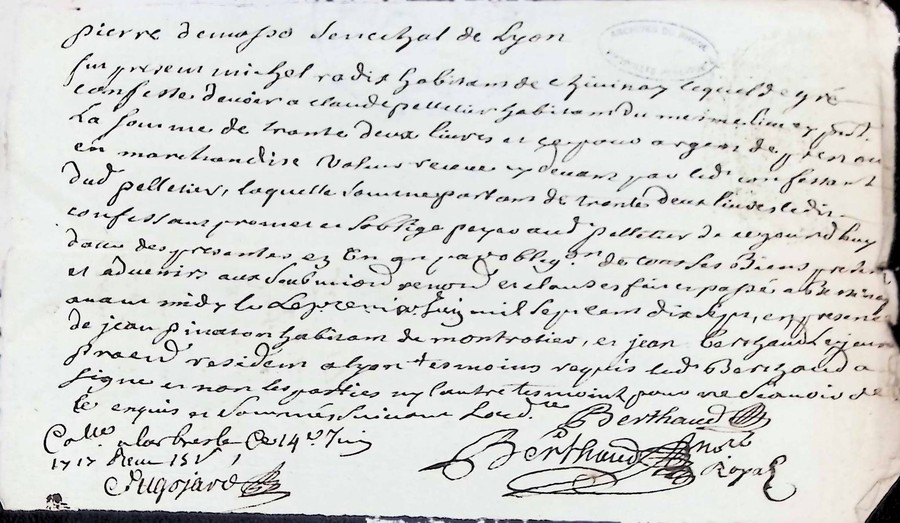 pierre demasso senechal de Lyon
fut present michel radix habitant de chivinay lequel de gré
confesse devoir a claude pelletier habitant du mesme lieu cy pnt.
La somme de trante deux livres et ce pour argent de prest ou
en marchandise valeur receue cy devant par led. confessant
dud. pelletier, laquelle somme partant de trante deux livres ledit
confessant promet et soblige payer aud. pelletier de ce jourdhuy
datte des presentes en un an par oblig.on de tous ses Biens presents
et advenir aux soubmions renon.ons et clauses fait et passé a
avant midy le premier juin mil sept cent dix sept, en presence
de jean pinaton habitant de montrotier, et jean Berthaud
resident a lyon tesmoins requis led. Berthaud a
signé et non les parties ny lautre tesmoint pour ne scavoir de
ce enquis et sommes suivant Lord.ce
Berthaud
Colle a larbresle Ce 14e Juin
1717 Receu
Pugojard
Berthaud no.re Royal